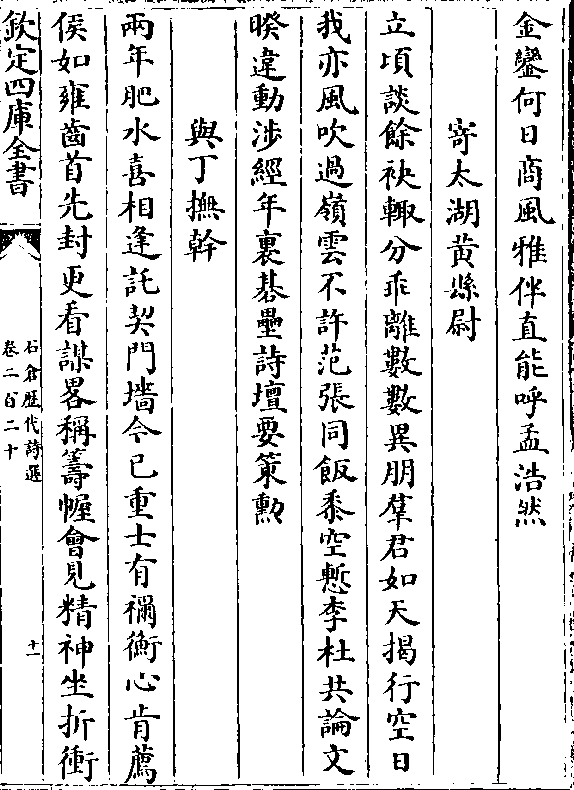 金鑾何日商風雅伴直能呼孟浩然
寄太湖黄縣尉
立頃談餘袂輙分乖離數數異朋羣君如天揭行空日
我亦風吹過嶺雲不許范張同飯黍空慙李杜共論文
暌違動涉經年裏棊壘詩壇要策勲
與丁撫幹
兩年肥水喜相逢託契門墻今已重士有禰衡心肯薦
侯如雍齒首先封更看謀畧稱籌幄會見精神坐折衝
欽定四庫全書
石倉歷代詩選
卷二百二十
十一